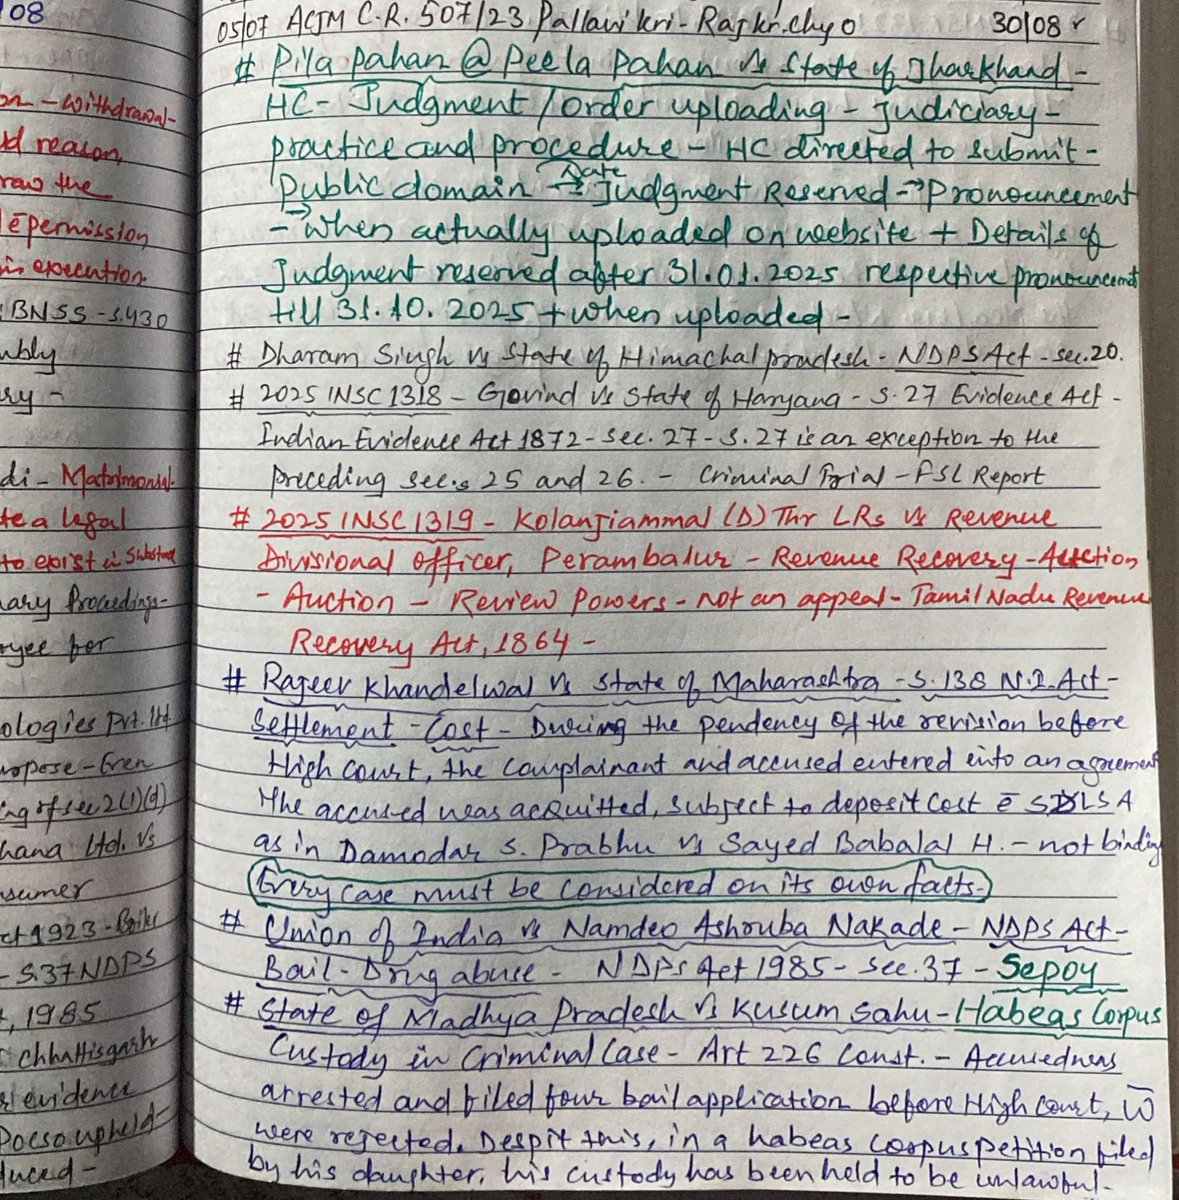 08
on - withdrawal-
d reason,
raw the
ē permission
is execution.
BNSS - S.430
mbly
ry -
di - Matrimonial-
te a legal
to exist in substance
nary Proceedings-
oyee for
ologies Pvt. ltd
ropose - Even
ng of sec 2(1)(d)
hana Ltd. Vs
nsumer
ct 1923 - Boiler
- S.37 NDPS
, 1985
chhattisgarh
evidence
Pocso upheld-
duced -
05/07 ACJM C.R. 507/23 Pallavi kri - Raj kr. chyo 30/08
# Pila pahan @ Peela Pahan Vs State of Jharkhand -
HC - Judgment / order uploading - Judiciary -
practice and procedure - HC directed to submit -
Public domain → Date Judgment Reserved → Pronouncement
- → when actually uploaded on website + Details of
Judgment reserved after 31.01.2025 respective pronouncement
till 31.10.2025 + when uploaded -
# Dharam Singh Vs State of Himachal pradesh - NDPS Act - sec. 20.
# 2025 INSC 1318 - Govind Vs State of Haryana - S.27 Evidence Act -
Indian Evidence Act 1872 - sec. 27 - S.27 is an exception to the
preceding sec.s 25 and 26. - Criminal Trial - FSL Report
# 2025 INSC 1319 - Kolanjiammal (D) Thr LRs Vs Revenue
Divisional officer, Perambalur - Revenue Recovery - Auction
- Auction - Review Powers - not an appeal - Tamil Nadu Revenue
Recovery Act, 1864 -
# Rajeev Khandelwal Vs State of Maharashtra - S.138 N.I. Act -
Settlement - Cost - During the pendency of the revision before
High court, the complainant and accused entered into an agreement
The accused was acquitted, subject to deposit cost ē SLSA
as in Damodar S. Prabhu Vs Sayed Babalal H. - not binding
Every case must be considered on its own facts -
# Union of India Vs Namdeo Ashruba Nakade - NDPS Act -
Bail - Drug abuse - NDPS Act 1985 - sec. 37 - Sepoy
# State of Madhya Pradesh Vs Kusum Sahu - Habeas Corpus
Custody in Criminal Case - Art 226 Const. - Accused was
arrested and filed four bail application before High Court, w̄
were rejected. Despit this, in a habeas corpus petition filed
by his daughter, his custody has been held to be unlawful -